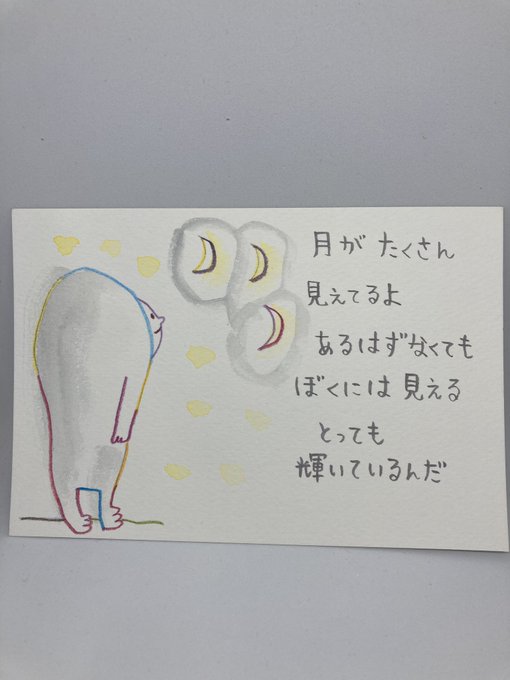 月が たくさん
見えてるよ
あるはずなくても
ぼくには 見える
とっても
輝いているんだ